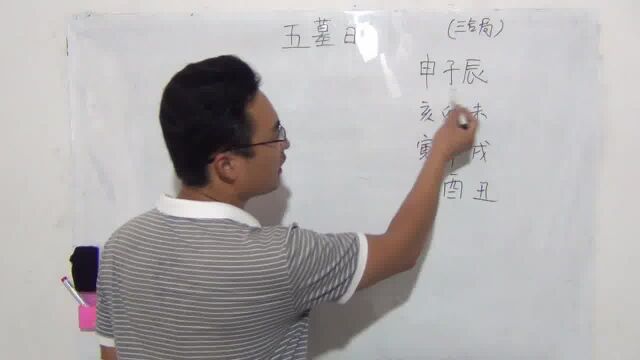 五墓日 (三合局)
申子辰
亥卯未
寅午戌
酉丑